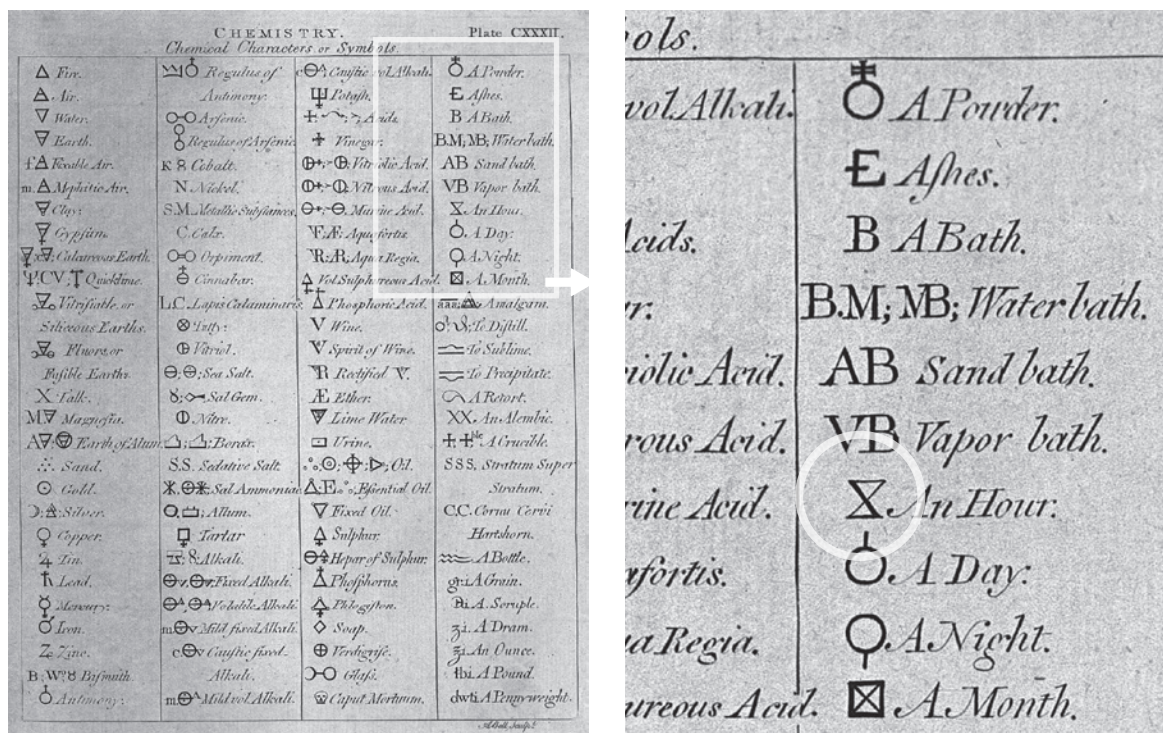 CHEMISTRY.
Plate CXXXII.
Chemical Characters or Symbols.
△ Fire.
Air.
▽ Water.
Earth.
Fixable Air.
m. △ Mephitic Air.
Clay.
Gypsum.
Calcareous Earth.
CV; Quicklime.
Vitrifiable, or
Siliceous Earths.
Fluors, or
Fusible Earths.
X Talk.
M Magnesia.
A Earth of Alum.
Sand.
☉ Gold.
Silver.
♀ Copper.
♃ Tin.
♄ Lead.
☿ Mercury.
♂ Iron.
Z Zinc.
B; W; ♉ Bismuth.
♁ Antimony.
Regulus of
Antimony.
Arsenic.
Regulus of Arsenic.
K 8 Cobalt.
N Nickel.
S.M. Metallic Substances.
C. Calx.
Orpiment.
Cinnabar.
L.C. Lapis Calaminaris.
Tutty.
Vitriol.
Sea Salt.
Sal Gem.
Nitre.
Borax.
S.S. Sedative Salt.
Sal Ammoniac.
Allum.
Tartar
Alkali.
Fixed Alkali.
Volatile Alkali.
m Mild fixed Alkali.
c Caustic fixed.
Alkali.
m Mild vol. Alkali.
c Caustic vol. Alkali.
Potash.
Acids.
Vinegar.
Vitriolic Acid.
Nitrous Acid.
Marine Acid.
Aqua fortis.
Aqua Regia.
Vol. Sulphureous Acid.
Phosphoric Acid.
V Wine.
Spirit of Wine.
Rectified
Æ Ether.
Lime Water
Urine.
Oil.
Essential Oil.
▽ Fixed Oil.
Sulphur.
Hepar of Sulphur.
Phosphorus.
Phlogiston.
◇ Soap.
⊕ Verdigrise.
Glass.
Caput Mortuum.
♁ A Powder.
£ Aſhes.
B A Bath.
B.M; MB; Water bath.
AB Sand bath.
VB Vapor bath.
An Hour.
A Day.
A Night.
A Month.
aaa; Amalgam.
To Distill.
To Sublime.
To Precipitate.
A Retort.
XX. An Alembic.
A Crucible.
SSS. Stratum Super
Stratum.
C.C. Cornu Cervi
Hartshorn.
A Bottle.
gr.i A Grain.
A Scruple.
ʒi. A Dram.
An Ounce.
A Pound.
dwt.i A Pennyweight.
A. Bell Sculp.t
ols.
vol. Alkali.
cids.
r.
iolic Acid.
rous Acid.
rine Acid.
afortis.
a Regia.
ureous Acid.
♁ A Powder.
£ Aſhes.
B A Bath.
B.M; MB; Water bath.
AB Sand bath.
VB Vapor bath.
An Hour.
A Day.
A Night.
A Month.